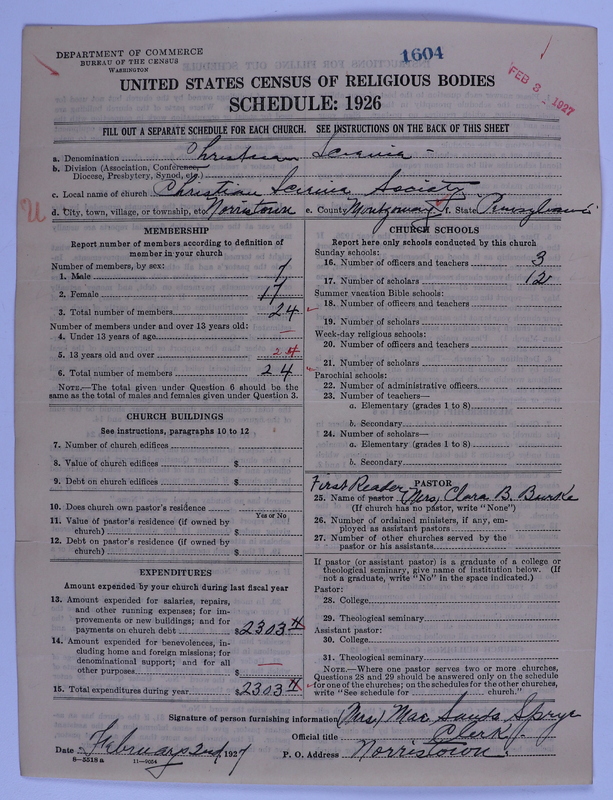 1604
FEB 3 - 1927
DEPARTMENT OF COMMERCE
BUREAU OF THE CENSUS
WASHINGTON
UNITED STATES CENSUS OF RELIGIOUS BODIES
SCHEDULE: 1926
FILL OUT A SEPARATE SCHEDULE FOR EACH CHURCH. SEE INSTRUCTIONS ON THE BACK OF THIS SHEET
a. Denomination Christian Science
b. Division (Association, Conference,
Diocese, Presbytery, Synod, etc.)
c. Local name of church Christian Science Society
U d. City, town, village, or township, etc. Norristown e. County Montgomery f. State Pennsylvania
MEMBERSHIP
Report number of members according to definition of
member in your church
Number of members, by sex:
1. Male 7
2. Female 17
3. Total number of members 24
Number of members under and over 13 years old:
4. Under 13 years of age —
5. 13 years old and over 24
6. Total number of members 24
NOTE.—The total given under Question 6 should be the
same as the total of males and females given under Question 3.
CHURCH BUILDINGS
See instructions, paragraphs 10 to 12
7. Number of church edifices
8. Value of church edifices $
9. Debt on church edifices $
10. Does church own pastor's residence
Yes or No
11. Value of pastor's residence (if owned by
church) $
12. Debt on pastor's residence (if owned by
church) $
EXPENDITURES
Amount expended by your church during last fiscal year
13. Amount expended for salaries, repairs,
and other running expenses; for im-
provements or new buildings; and for
payments on church debt $2303
14. Amount expended for benevolences, in-
cluding home and foreign missions; for
denominational support; and for all
other purposes $ —
15. Total expenditures during year $2303
CHURCH SCHOOLS
Report here only schools conducted by this church
Sunday schools:
16. Number of officers and teachers 3
17. Number of scholars 12
Summer vacation Bible schools:
18. Number of officers and teachers
19. Number of scholars
Week-day religious schools:
20. Number of officers and teachers
21. Number of scholars
Parochial schools:
22. Number of administrative officers
23. Number of teachers—
a. Elementary (grades 1 to 8)
b. Secondary
24. Number of scholars—
a. Elementary (grades 1 to 8)
b. Secondary
First Reader PASTOR
25. Name of pastor (Mrs) Clara B. Burke
(If church has no pastor, write "None")
26. Number of ordained ministers, if any, em-
ployed as assistant pastors
27. Number of other churches served by the
pastor or his assistants
If pastor (or assistant pastor) is a graduate of a college or
theological seminary, give name of institution below. (If
not a graduate, write "No" in the space indicated.)
Pastor:
28. College
29. Theological seminary
Assistant pastor:
30. College
31. Theological seminary
NOTE.—Where one pastor serves two or more churches,
Questions 28 and 29 should be answered only on the schedule
for one of the churches; on the schedules for the other churches,
write "See schedule for church."
Signature of person furnishing information (Mrs) Mae Sands
Official title Clerk
Date February 2nd, 1927 P. O. Address Norristown
8—5518 a 11—9054